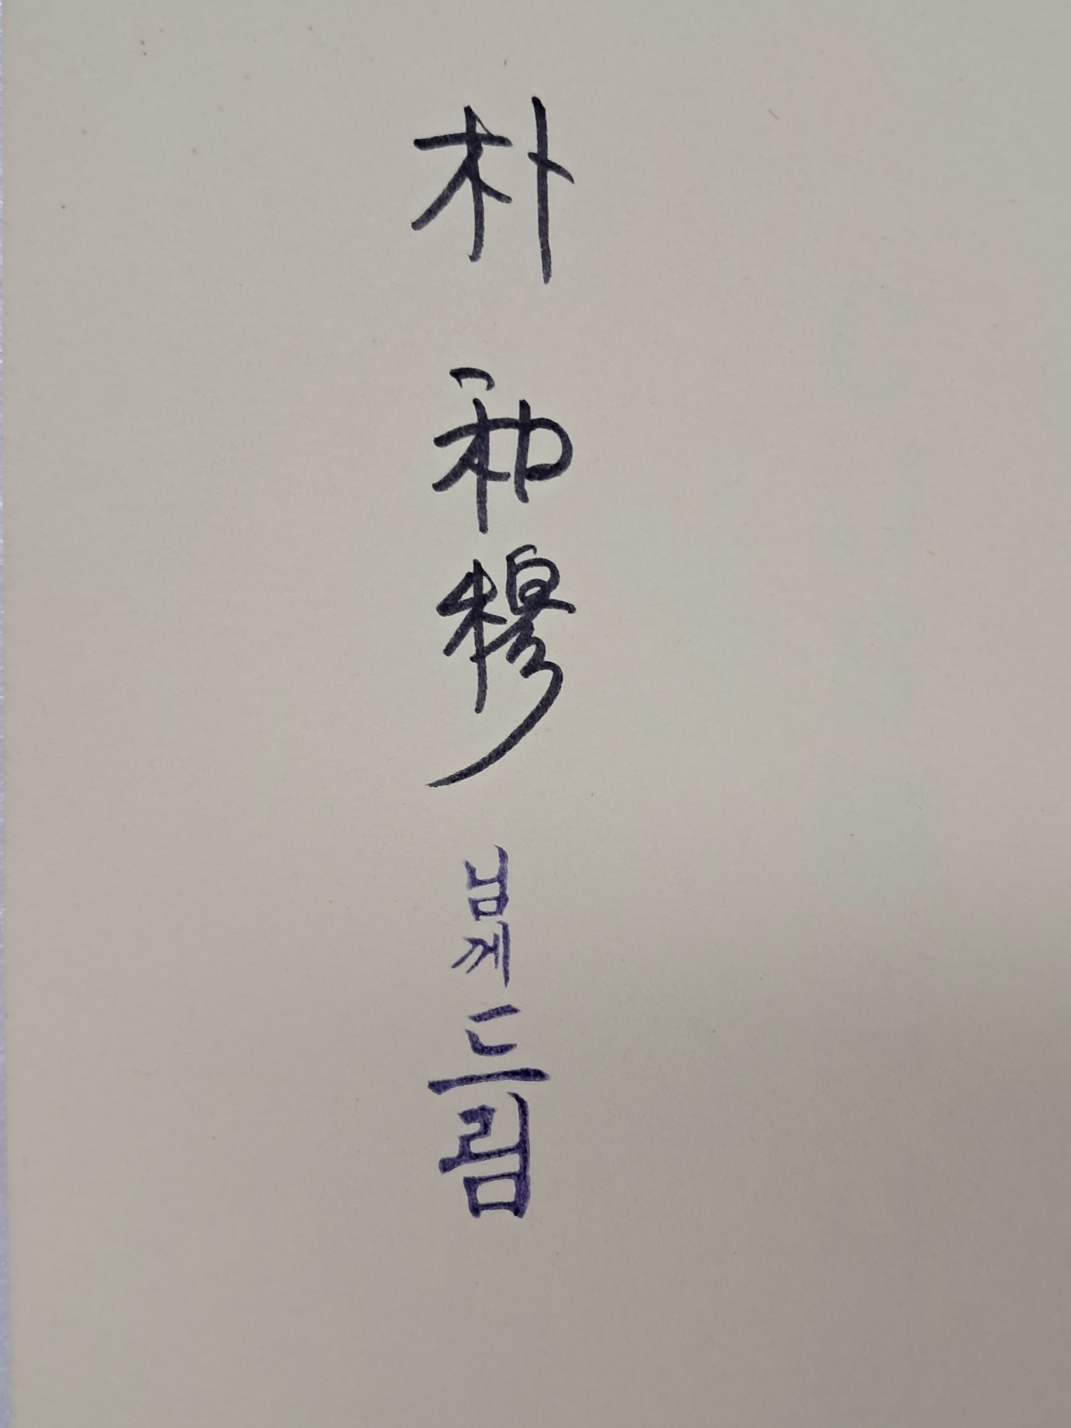 朴和穆
님께드림